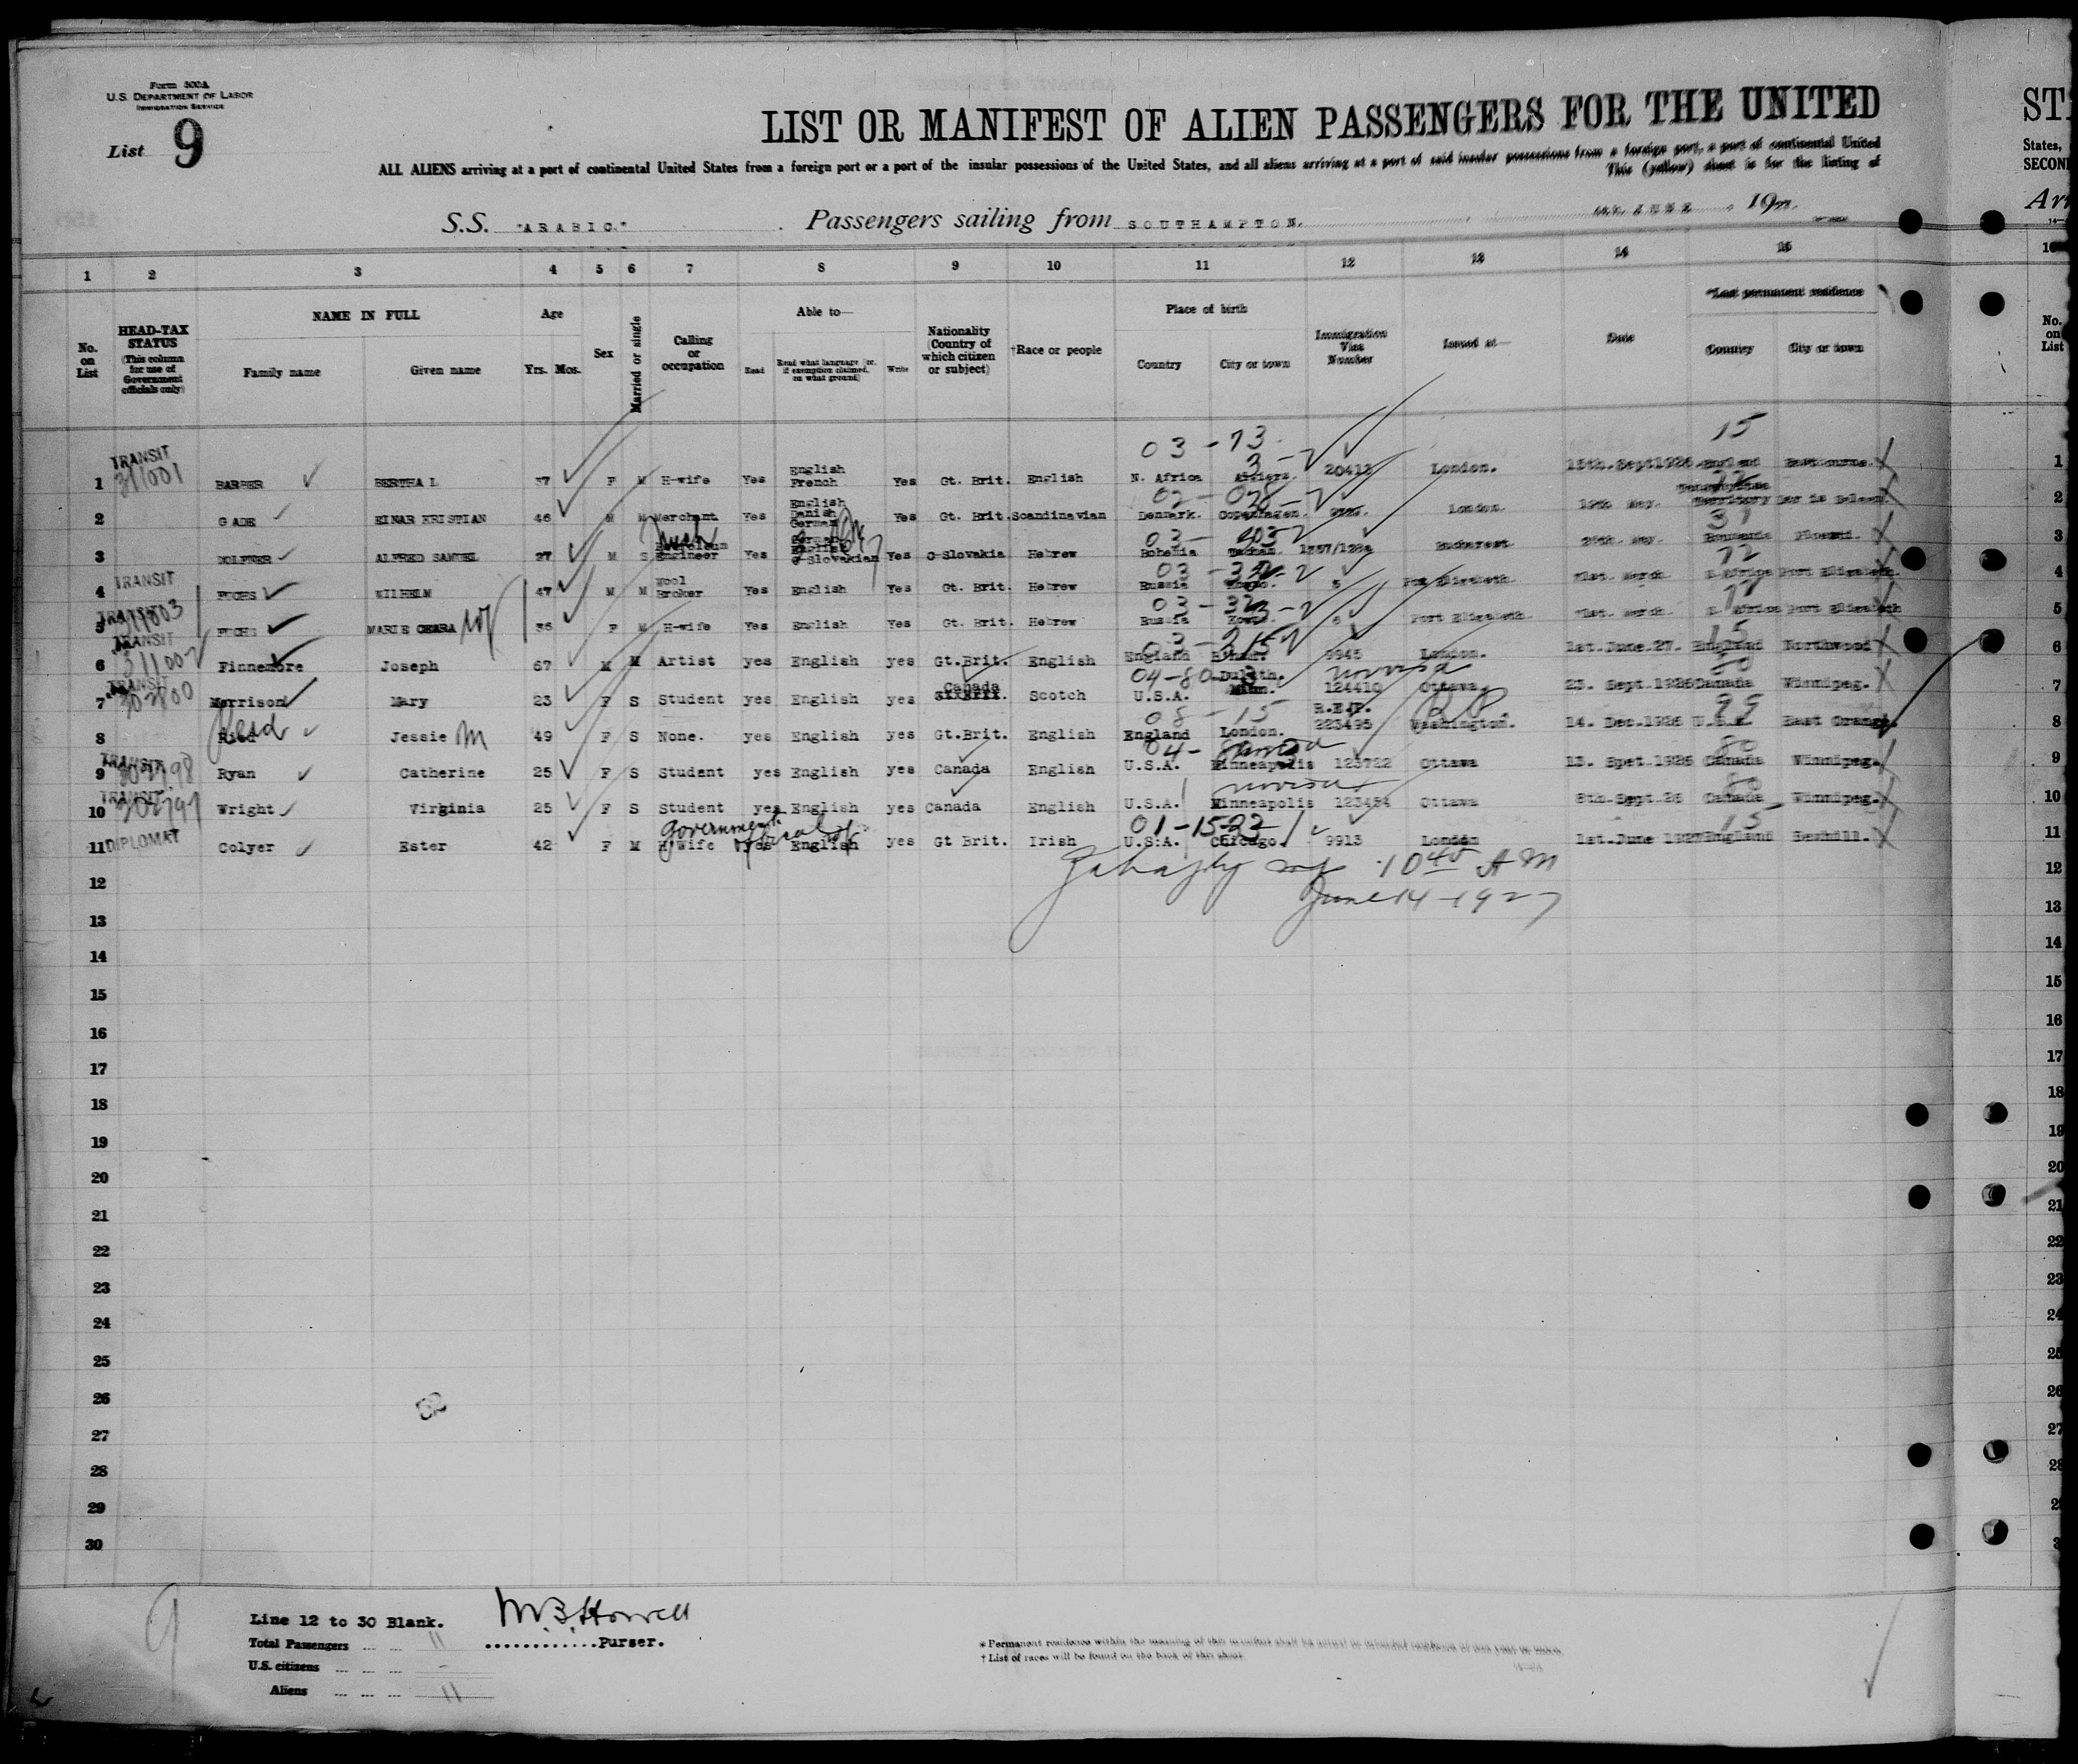 Form 500A
U.S. DEPARTMENT OF LABOR
IMMIGRATION SERVICE
List 9
LIST OR MANIFEST OF ALIEN PASSENGERS FOR THE UNITED
ST
ALL ALIENS arriving at a port of continental United States from a foreign port or a port of the insular possessions of the United States, and all aliens arriving at a port of said insular possessions from a foreign port, a port of continental United
States,
This (yellow) sheet is for the listing of
SECON
S.S. "ARABIC." Passengers sailing from SOUTHAMPTON. JUNE 19
Arr
1 2 3 4 5 6 7 8 9 10 11 12 13 14 15
No. on List
HEAD-TAX STATUS (This column for use of Government officials only)
NAME IN FULL Family name Given name
Age Yrs. Mos.
Sex
Married or single
Calling or occupation
Able to— Read Read what language (or, if exemption claimed, on what ground) Write
Nationality (Country of which citizen or subject)
†Race or people
Place of birth Country City or town
Immigration Visa Number
Issued at—
Date
*Last permanent residence Country City or town
No. on List
03 - 73 15
1 TRANSIT 311001 BARBER BERTHA L 37 F M H-wife Yes English French Yes Gt. Brit. English N. Africa Algiers. 20412 London. 15th.Sept1926 England Eastbourne. 1
2 GADE EINAR KRISTIAN 46 M M Merchant Yes English Danish German Yes Gt. Brit. Scandinavian Denmark. Copenhagen. London. 19th May. Territory Dar is Salaam. 2
3 ALFRED SAMUEL 27 M S Petroleum Engineer Yes German English C-Slovakian Yes C-Slovakia Hebrew Bohemia Bucharest May. Roumania Ploesti. 3
4 TRANSIT FUCHS WILHELM 47 M M Wool Broker Yes English Yes Gt. Brit. Hebrew Russia 5 Port Elizabeth 21st. March S. Africa Port Elizabeth. 4
5 TRANSIT FUCHS MARIE 36 F M H-wife Yes English Yes Gt. Brit. Hebrew Russia 6 Port Elizabeth 21st. March S. Africa Port Elizabeth 5
6 TRANSIT 311002 Finnemore Joseph 67 M M Artist yes English yes Gt.Brit. English England B'ham. 9945 London. 1st.June.27. England Northwood 6
7 TRANSIT 302800 Morrison Mary 23 F S Student yes English yes Canada Scotch U.S.A. Duluth. Minn. 124410 Ottawa. 23. Sept.1926 Canada Winnipeg. 7
8 Read Jessie M 49 F S None. yes English yes Gt.Brit. English England London. R.E.P. 223495 Washington. 14. Dec.1926 U.S.A. East Orange. 8
9 TRANSIT 302798 Ryan Catherine 25 F S Student yes English yes Canada English U.S.A. Minneapolis 123722 Ottawa 13. Spet.1926 Canada Winnipeg. 9
10 TRANSIT 302797 Wright Virginia 25 F S Student yes English yes Canada English U.S.A. Minneapolis 123454 Ottawa 8th.Sept.26 Canada Winnipeg. 10
Government Official
11 DIPLOMAT Colyer Ester 42 F M H/wife yes English yes Gt Brit. Irish U.S.A. Chicago. 9913 London 1st.June 1927 England Bexhill. 11
12 10 45 AM 12
13 June 14 - 1927 13
14 14
15 15
16 16
17 17
18 18
19 19
20 20
21 21
22 22
23 23
24 24
25 25
26 26
27 27
28 28
29
30
9
Line 12 to 30 Blank. M.B. Howell
Total Passengers 11 ............Purser.
U.S. citizens -
Aliens 11
* Permanent residence within the meaning of this manifest shall be actual or intended residence of one year or more.
† List of races will be found on the back of this sheet.